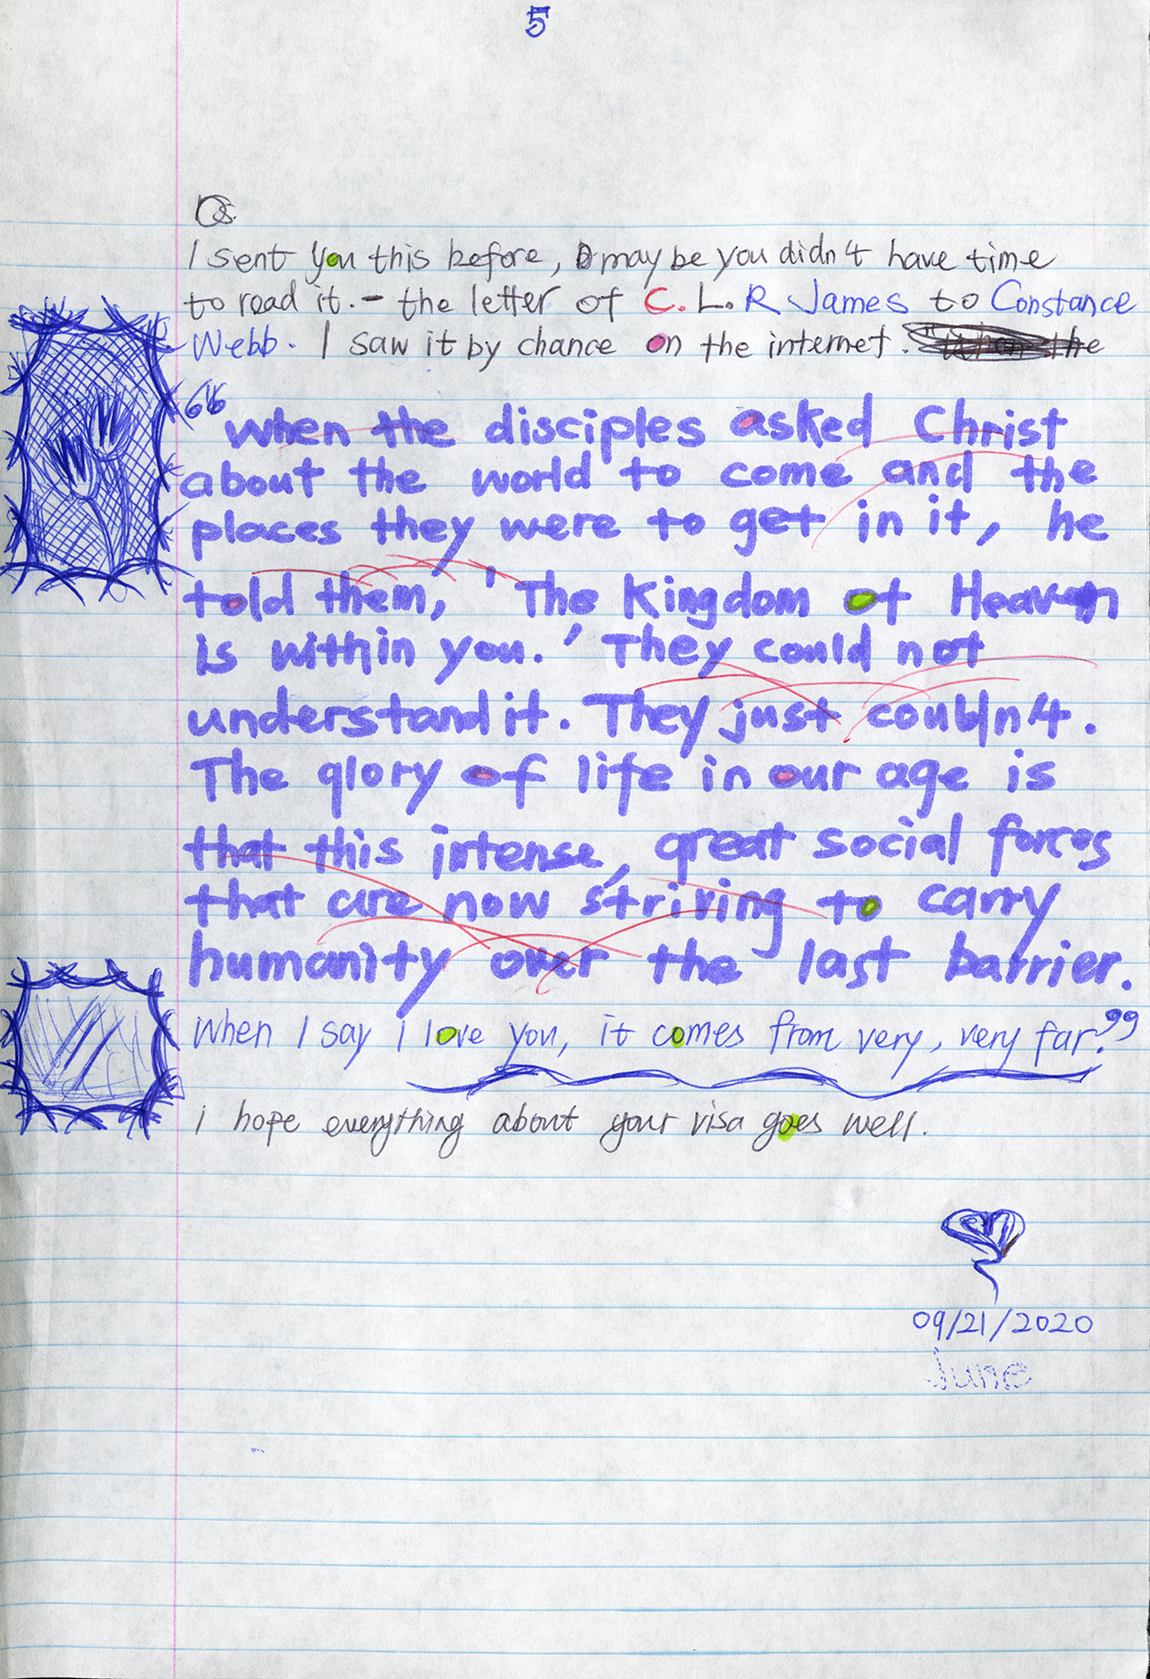 5
I sent you this before, may be you didn't have time
to read it. - the letter of C. L. R James to Constance
Webb. I saw it by chance on the internet. the
"when the disciples asked Christ
about the world to come and the
places they were to get in it, he
told them, 'The Kingdom of Heaven
is within you.' They could not
understand it. They just couldn't.
The glory of life in our age is
that this intense, great social forces
that are now striving to carry
humanity over the last barrier.
When I say i love you, it comes from very, very far."
i hope everything about your visa goes well.
09/21/2020
June